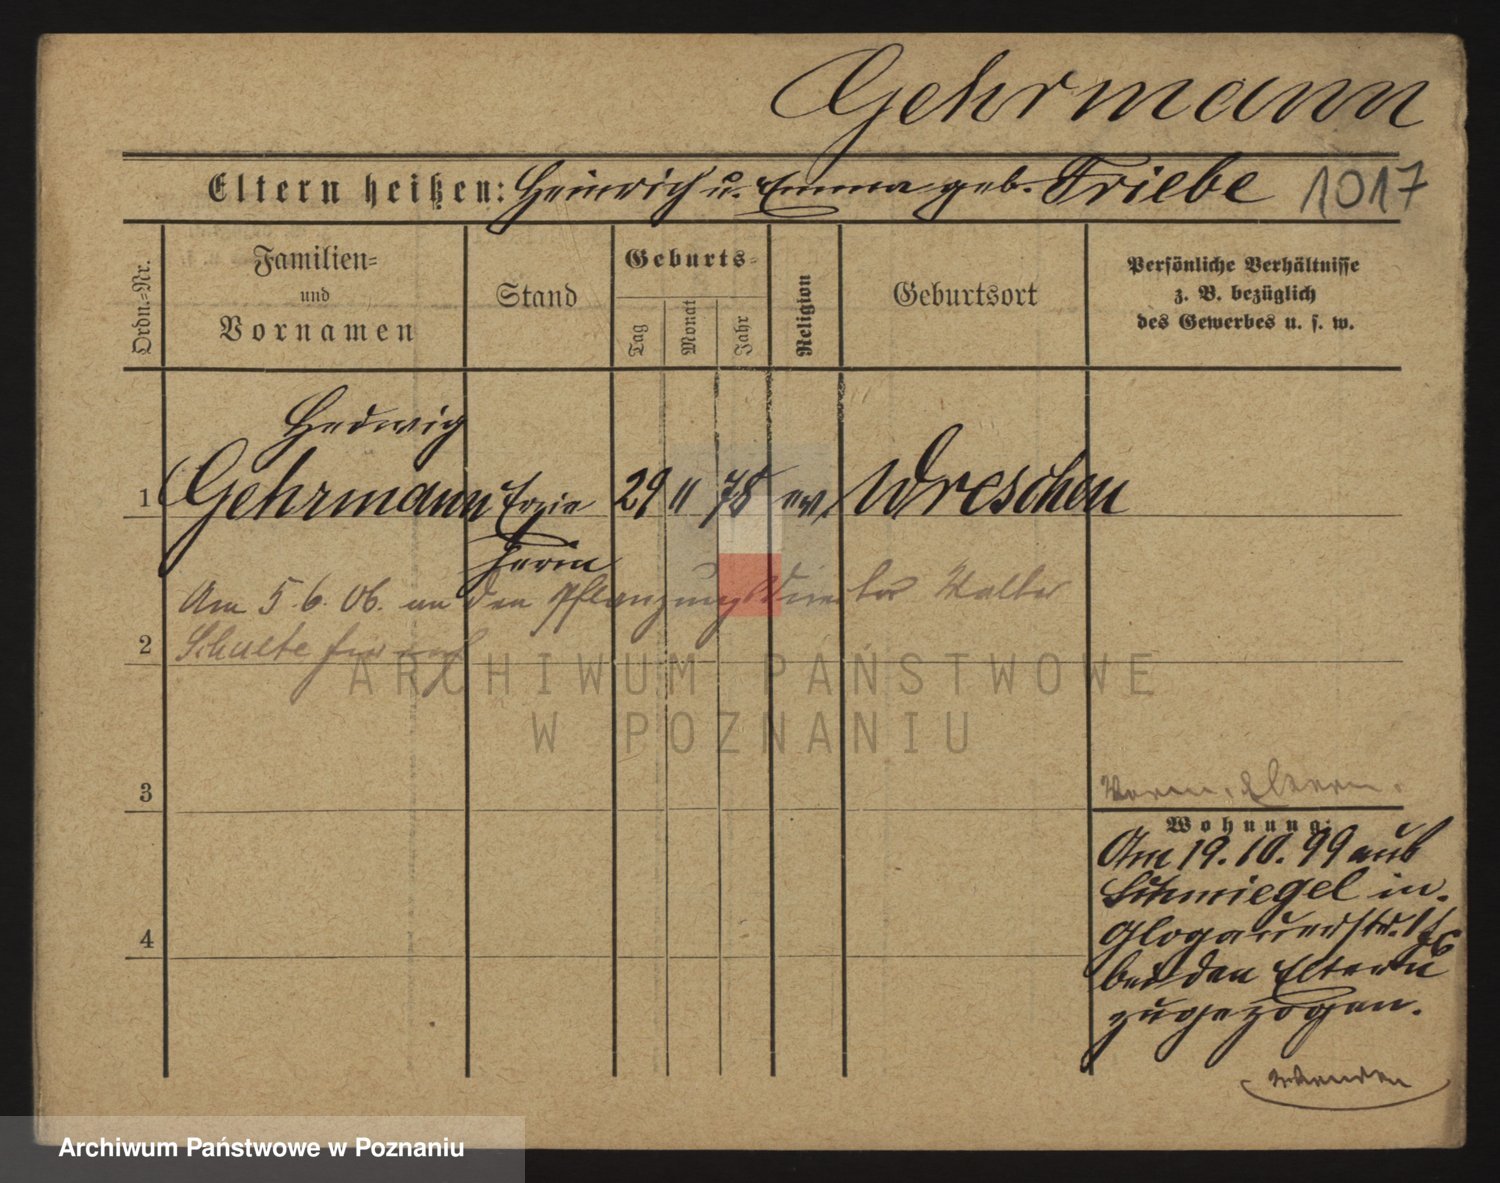 Gehrmann
Eltern heißen: Heinrich u. Emma geb. Triebe 1017
Ordn.-Nr.
Familien-
und
Vornamen
Stand
Geburts-
Tag
Monat
Jahr
Religion
Geburtsort
Persönliche Verhältnisse
z. B. bezüglich
des Gewerbes u. s. w.
Hedwig
1 Gehrmann Erzie 29 11 78 ev. Wreschen
herin
Am 5.6.06. an den Pflanzungsdirektor Walter
2 Schulte
ARCHIWUM PAŃSTWOWE
W POZNANIU
3
Eltern.
Wohnung:
Am 19.10.99 aus
Schmiegel in
Glogauerstr.
4
bei den Eltern
zugezogen.
wenden
Archiwum Państwowe w Poznaniu